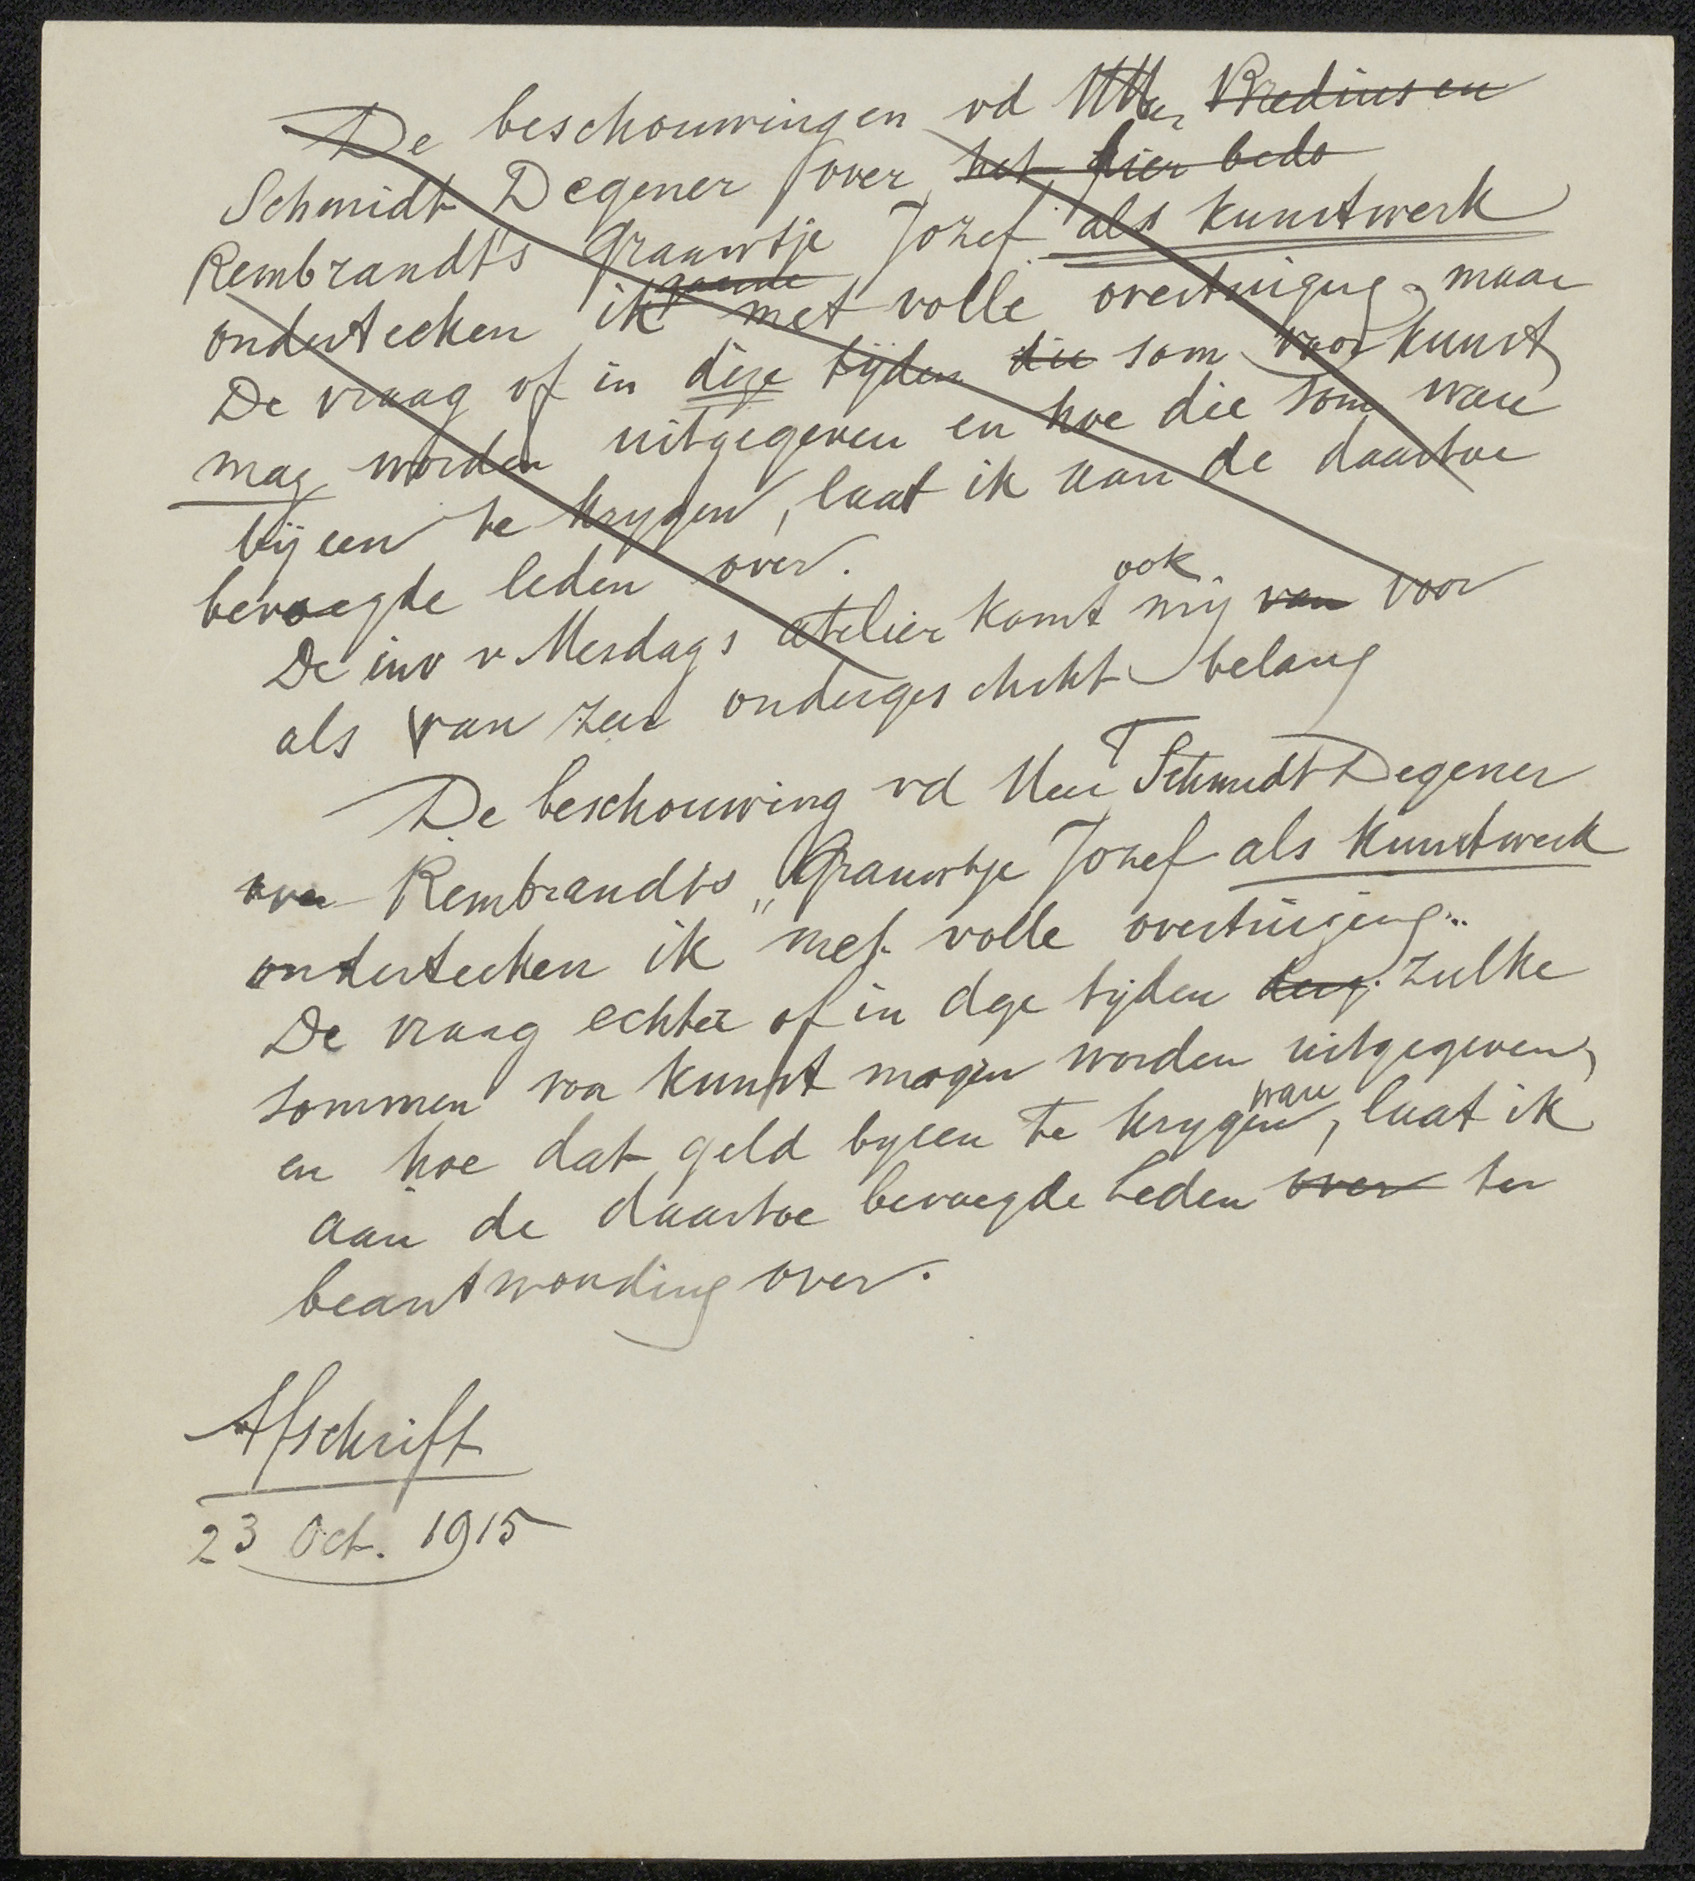 De beschouwingen vd HHn Bredius en
Schmidt Degener over het hier bedo
Rembrandt's Grauwtje Jozef als kunstwerk
onderteeken ik gaarne met volle overtuiging, maar
De vraag of in deze tijden die som voor kunst
mag worden uitgegeven en hoe die som ware
bijeen te krygen, laat ik aan de daartoe
bevoegde leden over.
De inv v Mesdags atelier komt ook mij van voor
als van zeer ondergeschikt belang
De beschouwing vd Heer Schmidt Degener
over Rembrandts „Grauwtje Jozef als kunstwerk
onderteeken ik met volle overtuiging..
De vraag echter of in deze tijden derg. zulke
sommen voor kunst mogen worden uitgegeven,
en hoe dat geld byeen te krygen ware, laat ik
aan de daartoe bevoegde Leden over ter
beantwoording over.
Afschrift
23 Oct. 1915